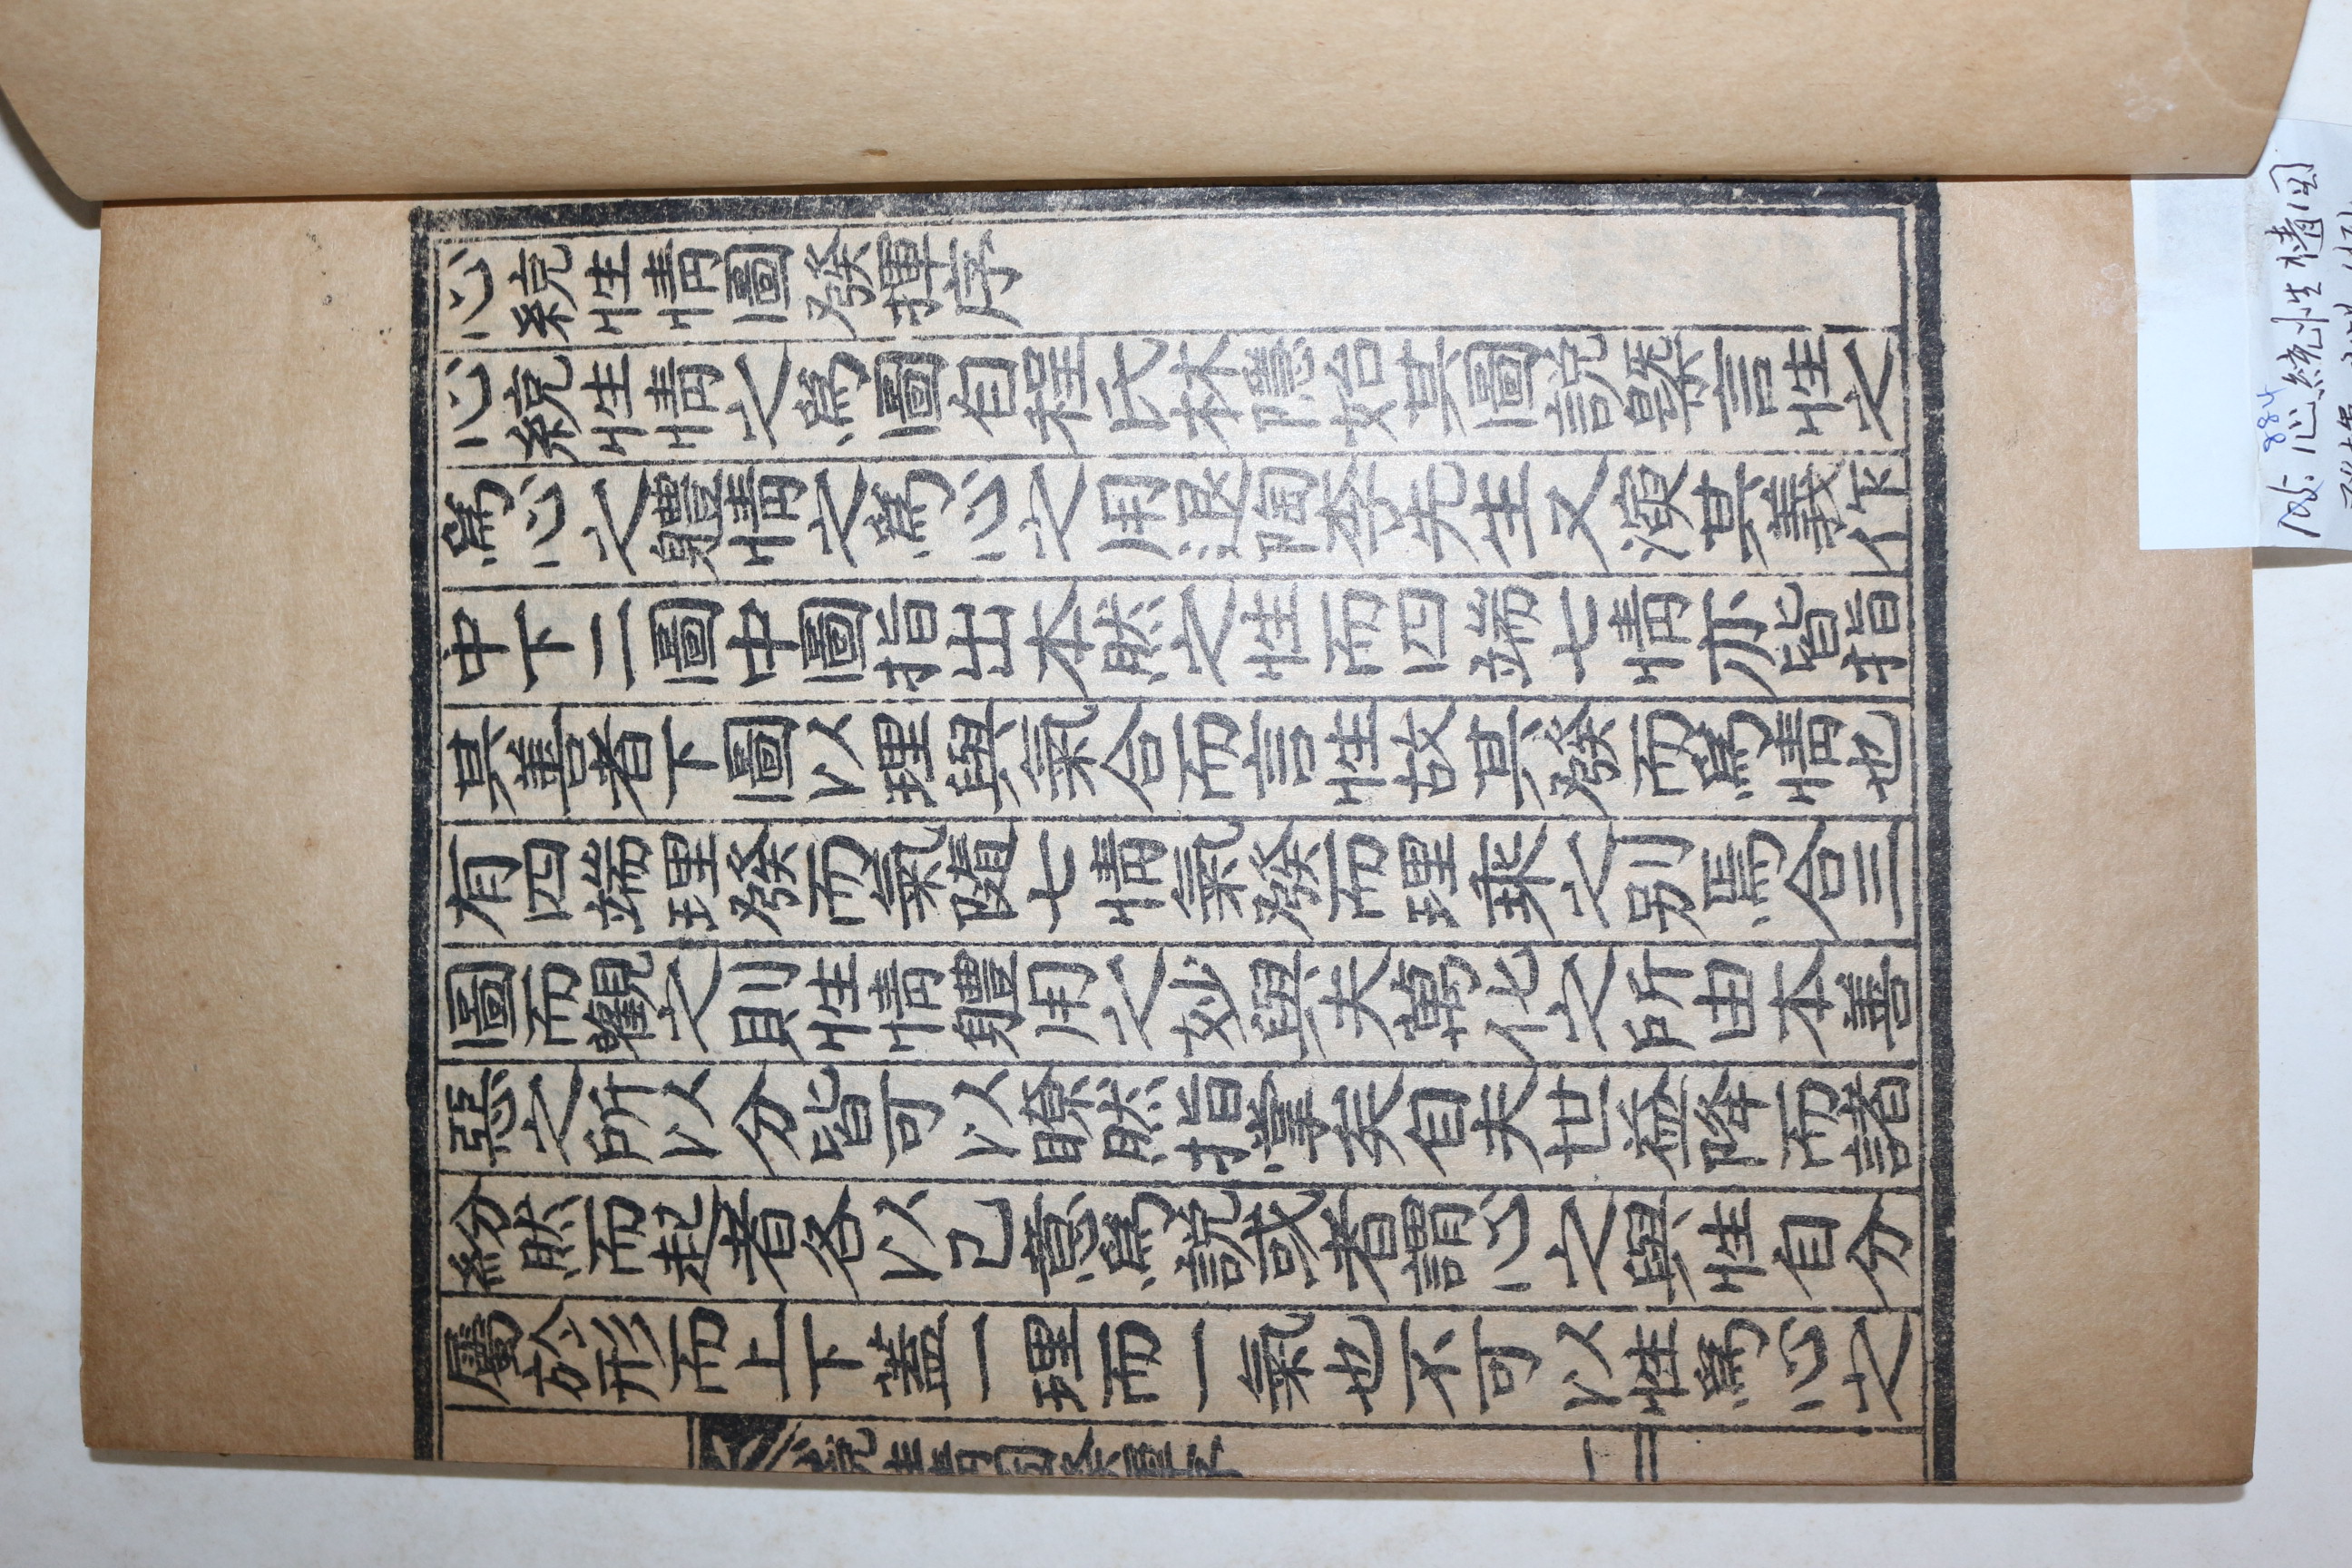 心統性情圖發揮序
心統性情之爲圖自程氏林隱始其圖說槩言性之
爲心之軆情之爲心之用退陶李先生又演其義作
中下二圖中圖指出本然之性而四端七情亦皆指
其善者下圖以理與氣合而言性故其發而爲情也
有四端理發而氣隨七情氣發而理乘之別焉合三
圖而觀之則性情軆用之妙與夫萬化之所由本善
惡之所以分皆可以瞭然指掌矣自夫世益降而諸
紛然而起者各以己意爲說或者謂心之與性自分
屬於形而上下蓋一理而一氣也不可以性爲心之
心統性情圖發揮序
一
884
105. 心統性情図